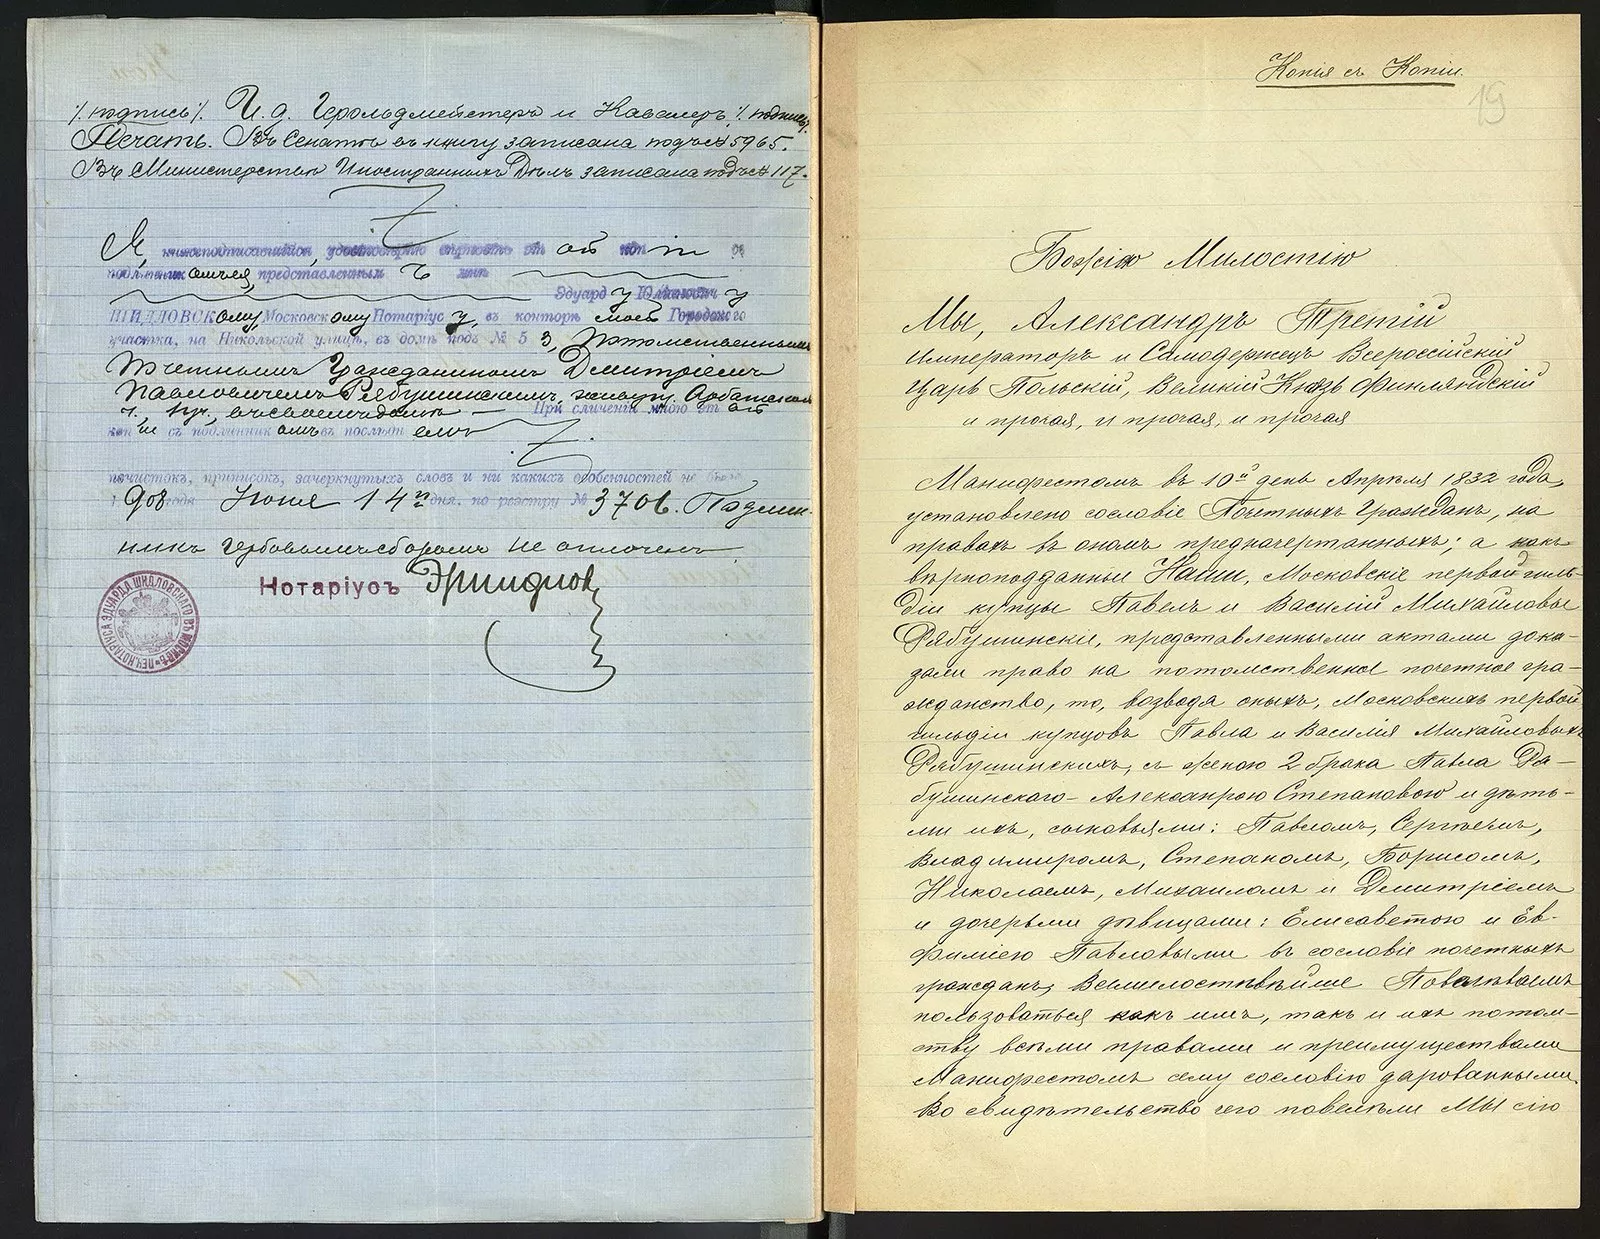 /. подпись /. И. д. Герольдмейстеръ и Кавалеръ, /. подпись /.
Печать. Въ Сенатѣ въ книгу записана подъ № 5965.
Въ Министерствѣ Иностранныхъ Дѣлъ записана подъ № 117.
Я, нижеподписавшійся, удостовѣряю вѣрность
подлинникомъ ея, представленнымъ
Эдуарду
ШИДЛОВСКому, Московскому Нотаріусу, въ конторѣ моей Городского
участка, на Никольской улицѣ, въ домѣ подъ № 5
Потомственнымъ
Почетнымъ Гражданиномъ Дмитріемъ
Павловичемъ Рябушинскимъ, живущ. Арбатской
ч., При сличеніи мною
коп іи съ подлинник омъ въ послѣдн емъ
почистокъ, приписокъ, зачеркнутыхъ словъ и ни какихъ особенностей не было
1908 года Іюня 14 дня. по реестру № 3706. Подлин-
никъ Гербовымъ сборомъ не оплоченъ
Нотаріусъ
ПЕЧ. НОТАРІУСА ЭДУАРДА ШИДЛОВСКАГО ВЪ МОСКВѢ
Копія съ Копіи.
19
Божіею Милостію
Мы, Александръ Третій
Императоръ и Самодержецъ Всероссійскій
Царь Польскій, Великій Князь Финляндскій
и прочая, и прочая, и прочая
Манифестомъ въ 10й день Апрѣля 1832 года,
установлено сословіе Почетныхъ Гражданъ, на
правахъ въ ономъ предначертанныхъ; а какъ
вѣрноподданныи Наши, Московскіе первой гиль-
діи купцы Павелъ и Василій Михайловы
Рябушинскіе, представленными актами дока-
зали право на потомственное почетное гра-
жданство, то, возводя оныхъ, Московскихъ первой
гильдіи купцовъ Павла и Василія Михайловыхъ
Рябушинскихъ, съ женою 2 брака Павла Ря-
бушинскаго - Александрою Степановою и дѣть-
ми ихъ, сыновьями: Павломъ, Сергѣемъ,
Владимиромъ, Степаномъ, Борисомъ,
Николаемъ, Михаиломъ и Дмитріемъ
и дочерьми дѣвицами: Елисаветою и Ев-
фиміею Павловыми въ сословіе почетныхъ
гражданъ, Всемилостивѣйше Повелѣваемъ
пользоваться какъ имъ, такъ и ихъ потом-
ству всѣми правами и преимуществами
Манифестомъ сему сословію дарованными.
Во свидѣтельство чего повелѣли МЫ сію